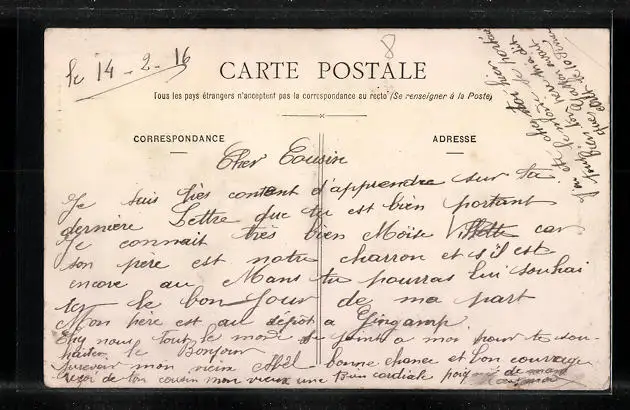 le 14-2-16
8
CARTE POSTALE
Tous les pays étrangers n'acceptent pas la correspondance au recto (Se renseigner à la Poste)
CORRESPONDANCE
ADRESSE
Cher Cousin
Je suis très content d'apprendre sur ta
dernière Lettre que tu est bien portant
Je connait très bien Moïse Villette car
son père est notre charron et s'il est
encore au Mans tu pourras lui souhai
ter le bon Jour de ma part
Mon père est au dépôt a Gingamp
Chez nous tout le monde se joint a moi pour te sou-
haiter le Bonjour
Aurevoir mon vieux Abel bonne chance et bon courage
reçoi de ton cousin mon vieux une bien cordiale poignée de main